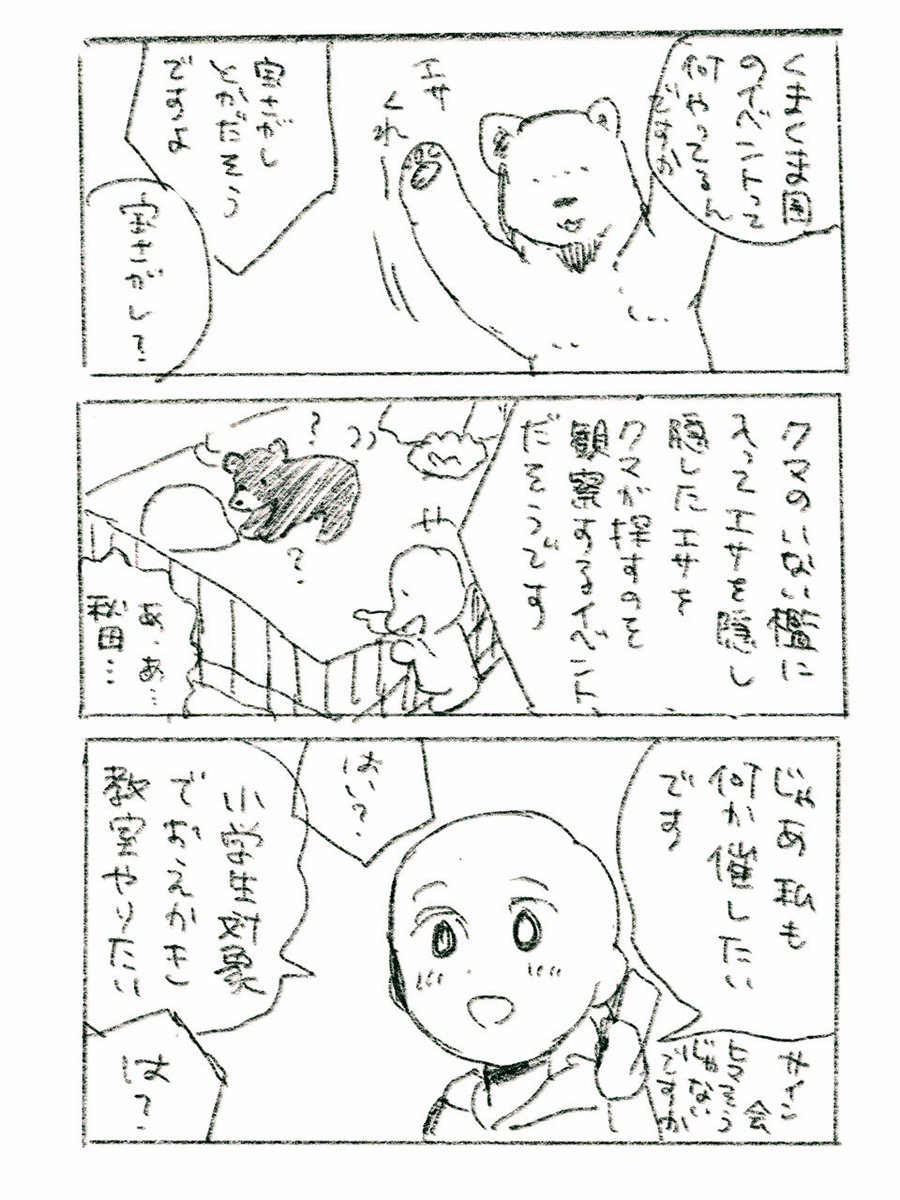 くまくま園
のイベントって
何やってるん
ですか
エサ
くれー
宝さがし
とかだそう
ですよ
宝さがし?
クマのいない檻に
入ってエサを隠し
隠したエサを
クマが探すのを
観察するイベント
だそうです
?
?
サ
あ、あ…
秋田…
じゃあ私も
何か催したい
です
サイン
会
ヒマそう
じゃない
ですか
はい?
小学生対象
でおえかき
教室やりたい
は?